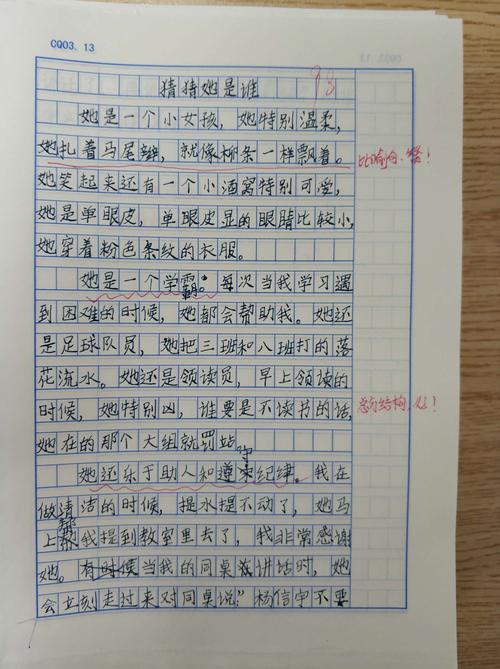 CQ03.13
猜猜她是谁 98
她是一个小女孩，她特别温柔，
她扎着马尾辫，就像柳条一样飘着。
比喻句，赞！
她笑起来还有一个小酒窝特别可爱，
她是单眼皮，单眼皮显的眼睛比较小，
她穿着粉色条纹的衣服。
她是一个学霸。每次当我学习遇
到困难的时候，她都会帮助我。她还
是足球队员，她把三班和八班打的落
花流水。她还是领读员，早上领读的
时候，她特别凶，谁要是不读书的话，
总分结构，
她在的那个大组就罚站。
她还乐于助人和遵守纪律。我在
做清洁的时候，提水提不动了，她马
上帮我提到教室里去了，我非常感谢
她。有时候当我的同桌讲话时，她
会立刻走过来对同桌说：“杨信宇不要